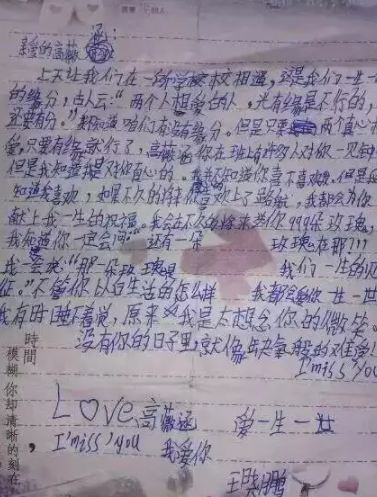 亲爱的高薇涵
上天让我们在一所学校相遇，这是我们一生
的缘分，古人云："两个人相爱的人。光有缘是不行的，
还要有分。"我知道咱们有没有缘分。但是只要两个真心相
爱，只要有缘就行了，高薇涵你在班上有许多人对你一见钟
但是我知道我是对你真心的。我不知道你喜不喜欢我。但是
知道我喜欢，如果不久的将来你喜欢上了，我都会为你
献上我一生的祝福。我会在不久的将来为你999朵玫瑰，
我知道你一定会问"还有一朵玫瑰在那???
我一定会说"那一朵玫瑰是我们一生的
征。"不管你以后生活的怎么样我都会爱你一生一世
我有时睡不着觉，原来我是太想念你的微笑。
没有你的日子里就像缺氧般的难受!
I'miss'you
Love高薇涵 爱一生一世
I'miss'you 我爱你
王鹏
時間
模糊，你却清晰的刻在